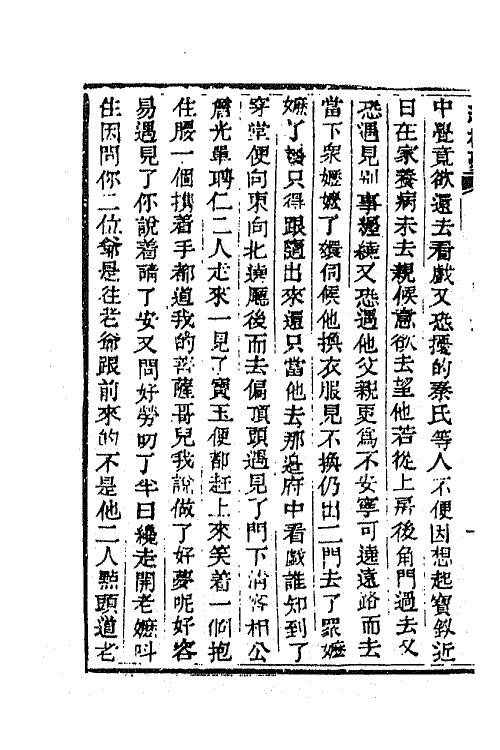 中覺竟欲還去看戲又恐擾的秦氏等人不便因想起寶釵近
日在家養病未去親候意欲去望他若從上房後角門過去又
恐遇見別事纏繞又恐遇他父親更爲不安寧可遶遠路而去
當下衆嬷嬷丫鬟伺候他換衣服見不換仍出二門去了眾嬷
嬷丫鬟只得跟隨出來還只當他去那邊府中看戲誰知到了
穿堂便向東向北遶廳後而去偏頂頭遇見了門下清客相公
詹光單聘仁二人走來一見了寶玉便都赶上來笑着一個抱
住腰一個携着手都道我的菩薩哥兒我說做了好夢呢好容
易遇見了你說着請了安又問好勞叨了半日纔走開老嬷叫
住因問你二位爺是往老爺跟前來的不是他二人點頭道老